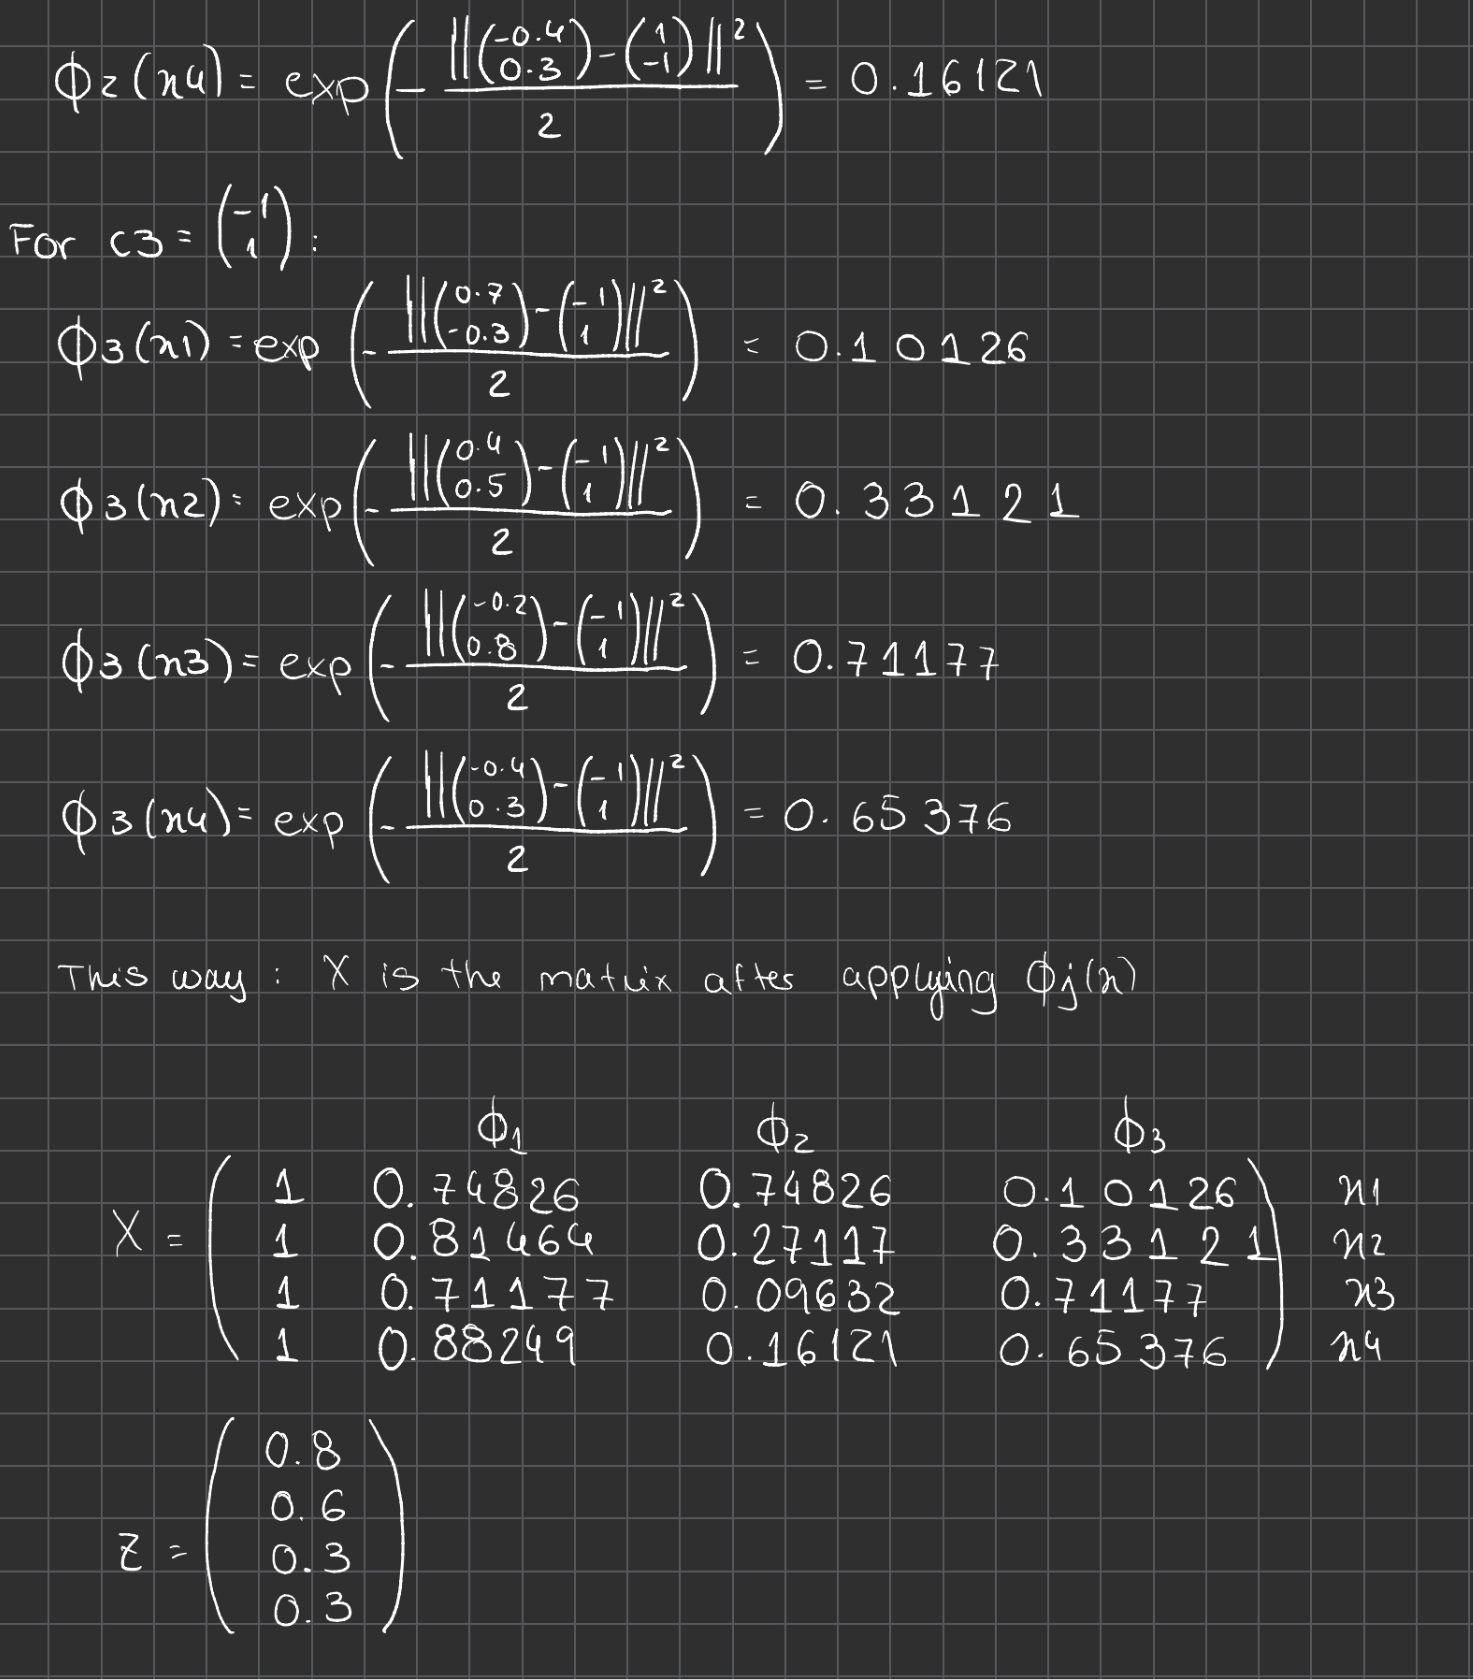 ϕ2(x4) = exp(- ||(-0.4 0.3) - (1 -1)||² / 2) = 0.16121
For c3 = (-1 1):
ϕ3(x1) = exp(- ||(0.7 -0.3) - (-1 1)||² / 2) = 0.10126
ϕ3(x2) = exp(- ||(0.4 0.5) - (-1 1)||² / 2) = 0.33121
ϕ3(x3) = exp(- ||(-0.2 0.8) - (-1 1)||² / 2) = 0.71177
ϕ3(x4) = exp(- ||(-0.4 0.3) - (-1 1)||² / 2) = 0.65376
This way : X is the matrix after applying ϕj(x)
ϕ1 ϕ2 ϕ3
1 0.74826 0.74826 0.10126 x1
X = 1 0.81464 0.27117 0.33121 x2
1 0.71177 0.09632 0.71177 x3
1 0.88249 0.16121 0.65376 x4
0.8
0.6
z = 0.3
0.3